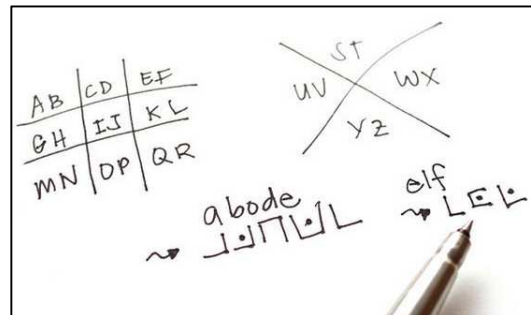 AB CD EF
GH IJ KL
MN OP QR
ST
UV WX
YZ
abode
elf